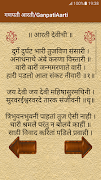 गणपती आरती/GanpatiAarti
॥ आरती देवीची ॥
दुर्गे दुर्घट भारी तुजविण संसारी
अनाथनाथे अंबे करुणा विस्तारी
वारी वारी जन्म मरणांते वारी
हारी पडलो आता संकट नीवारी ॥१॥
जय देवी जय देवी महिषासुरमर्दिनी
सुरवरईश्वरवरदे तारक संजीवनी
त्रिभुवन भुवनी पाहता तुजऐसी नाही
चारी श्रमले परंतु न बोलवे काही